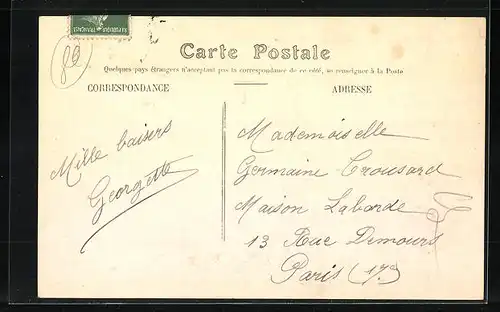 80
Carte Postale
Quelques pays étrangers n'acceptant pas la correspondance de ce côté, se renseigner à la Poste
CORRESPONDANCE
ADRESSE
Mille baisers
Georgette
Mademoiselle
Germaine Crousard
Maison Laborde
13 Rue Demours
Paris (17e)